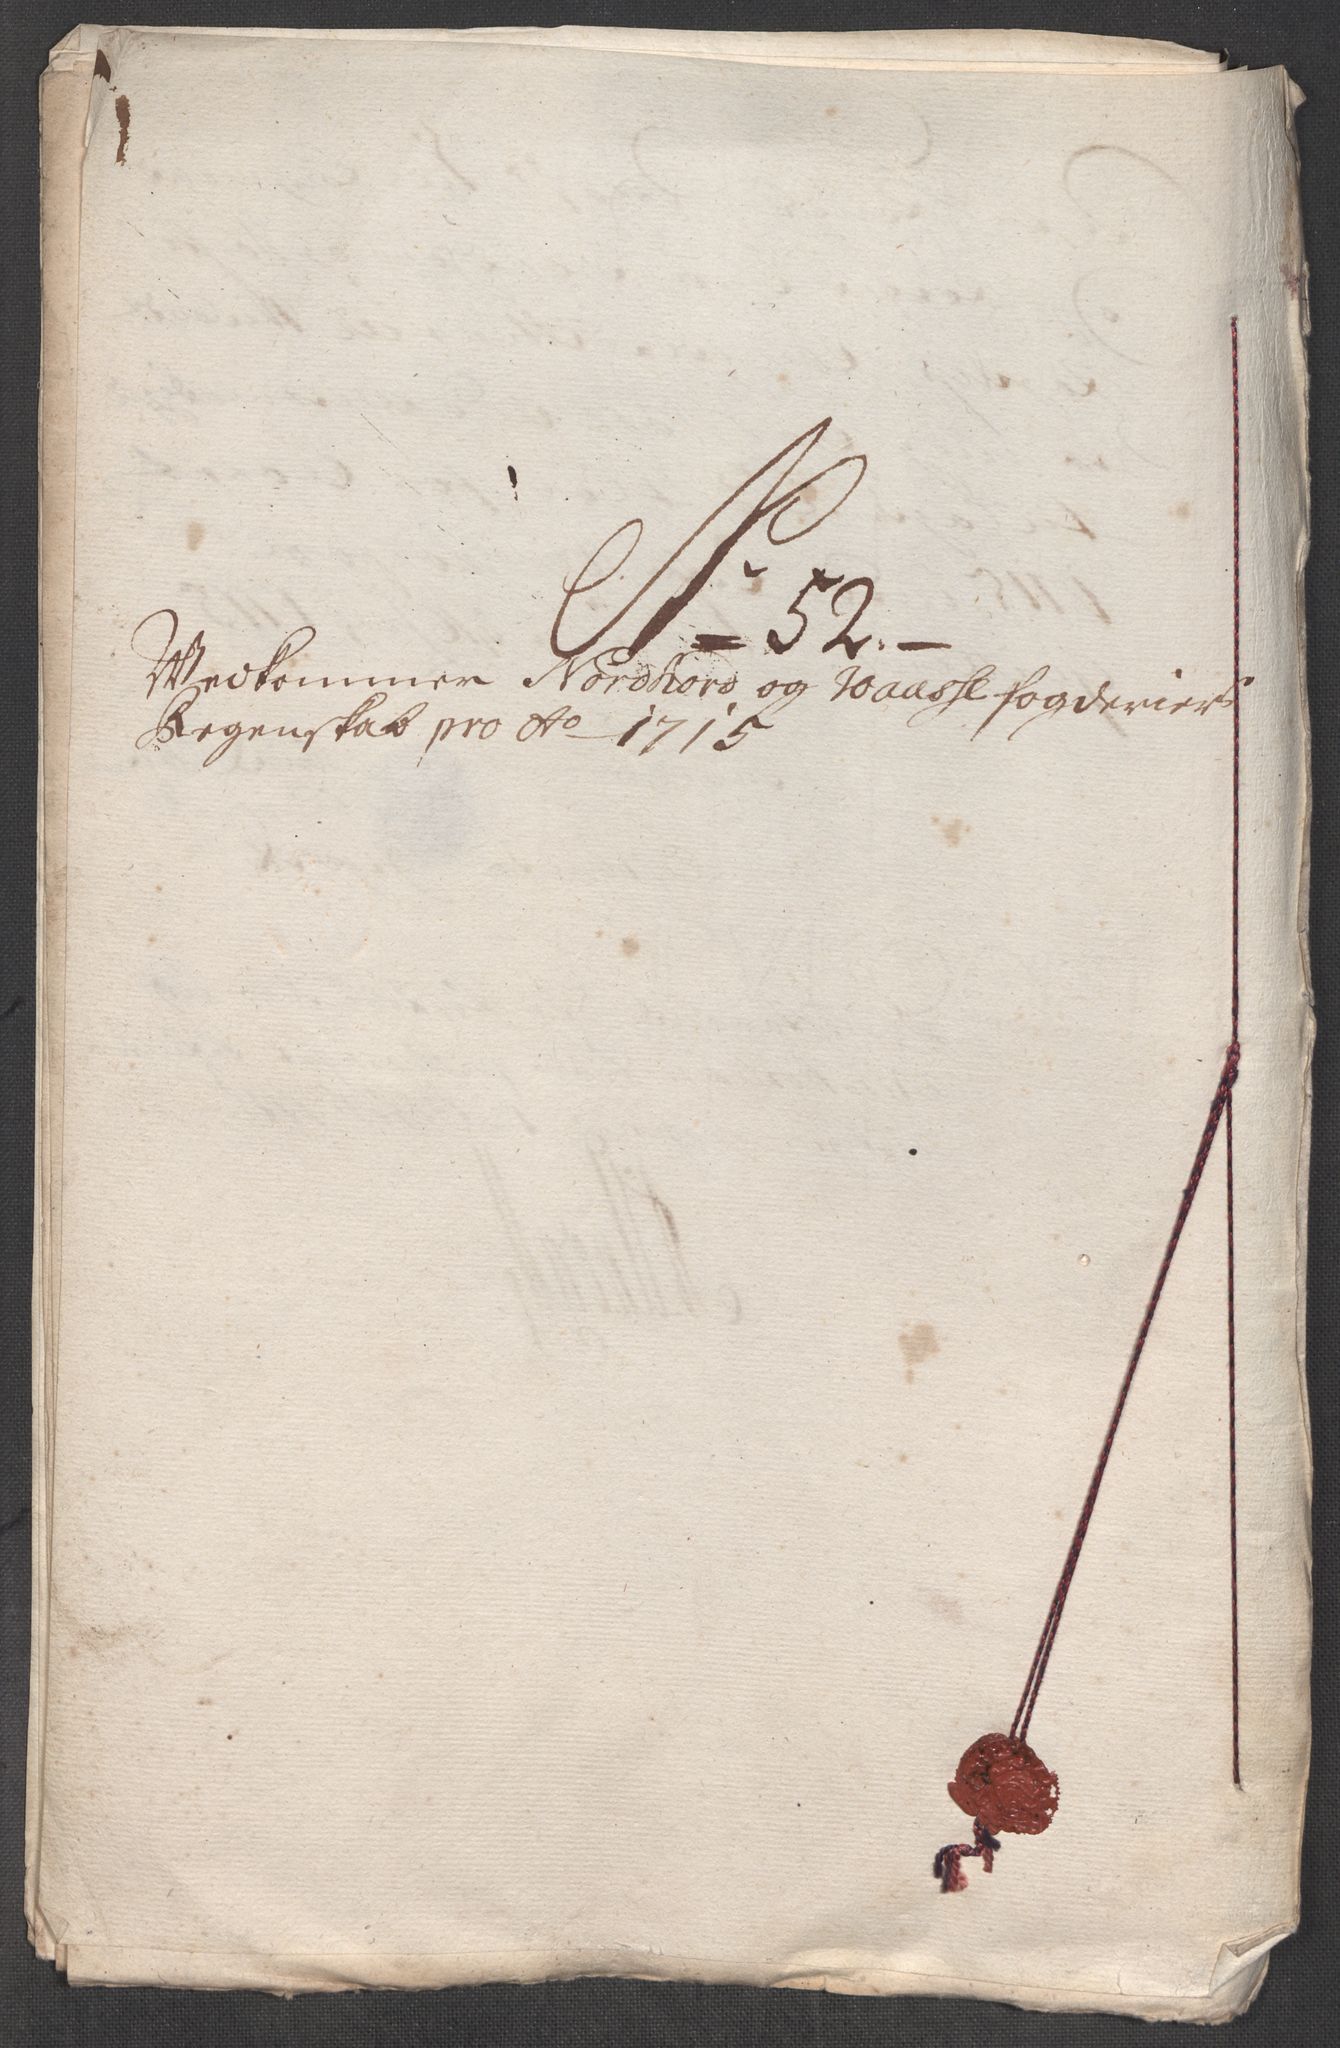 No 52.
Vedkommer Nordhord og Waassl fogderiers
Regenskab pro Ao 1715